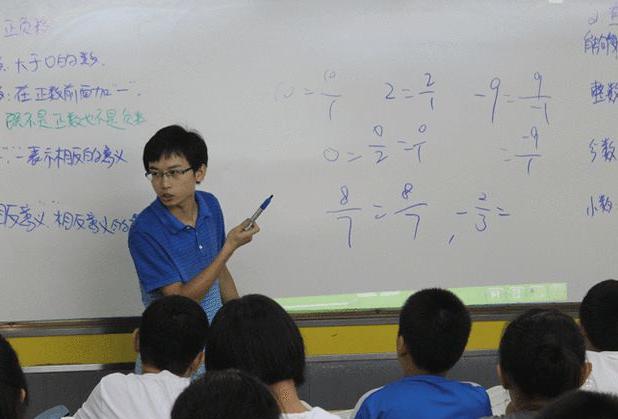 正负数
大于0的数.
在正数前面加"一".
既不是正数也不是负数
一表示相反的意义
相反意义
相反意义的
10 = 10/1
2 = 2/1
-9 = 9/-1
0 = 0/2 = 0/1
= -9/1
8/7 = 8/7 , -2/3 =
整数
分数
小数